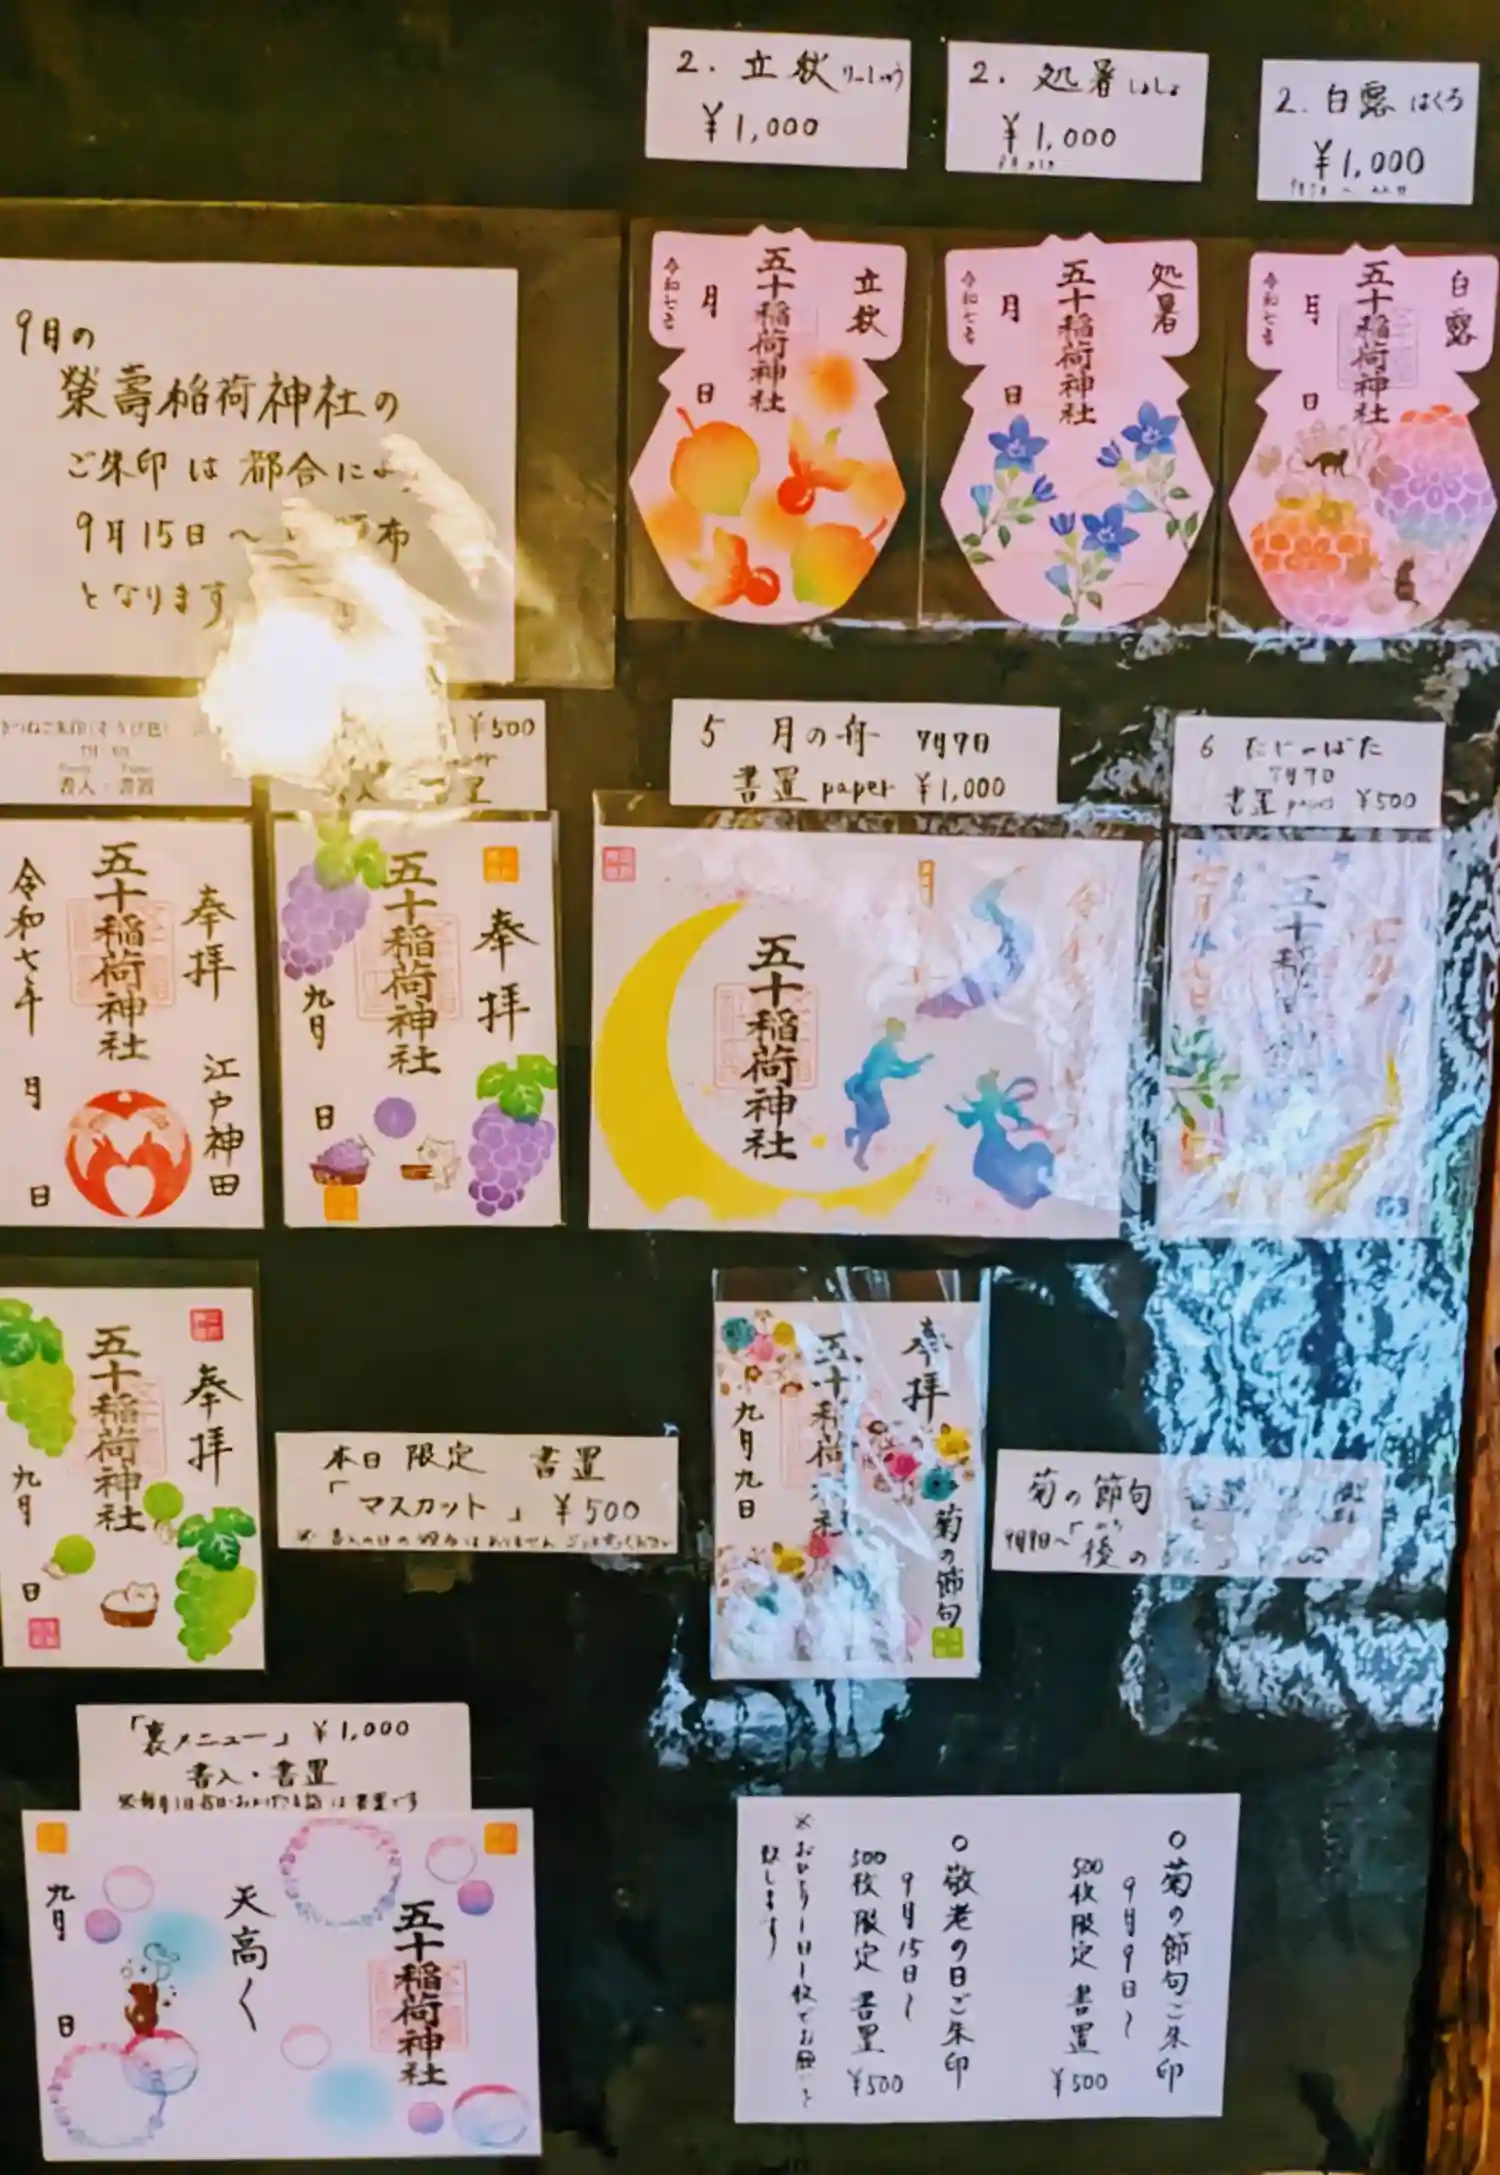 2. 立秋 りっしゅう
¥1,000
2. 処暑 しょしょ
¥1,000
2. 白露 はくろ
¥1,000
9月の
榮壽稲荷神社の
ご朱印は都合に
9月15日〜
となります
立秋
五十稲荷神社
令和七年
月
日
処暑
五十稲荷神社
令和七年
月
日
白露
五十稲荷神社
令和七年
月
日
書入・書置
¥500
5 月の舟 7月7日
書置 paper ¥1,000
6 たなばた
7月7日
書置 paper ¥500
奉拝
江戸神田
五十稲荷神社
令和七年
月
日
奉拝
五十稲荷神社
九月
日
五十稲荷神社
奉拝
五十稲荷神社
九月
日
本日限定 書置
「マスカット」¥500
奉拝
菊の節句
五十稲荷神社
九月九日
菊の節句
9月9日〜
「裏メニュー」¥1,000
書入・書置
五十稲荷神社
天高く
九月
日
○菊の節句ご朱印
9月9日〜
500枚限定 書置 ¥500
○敬老の日ご朱印
9月15日〜
500枚限定 書置 ¥500
※おひとり一日一枚でお願いと
致します